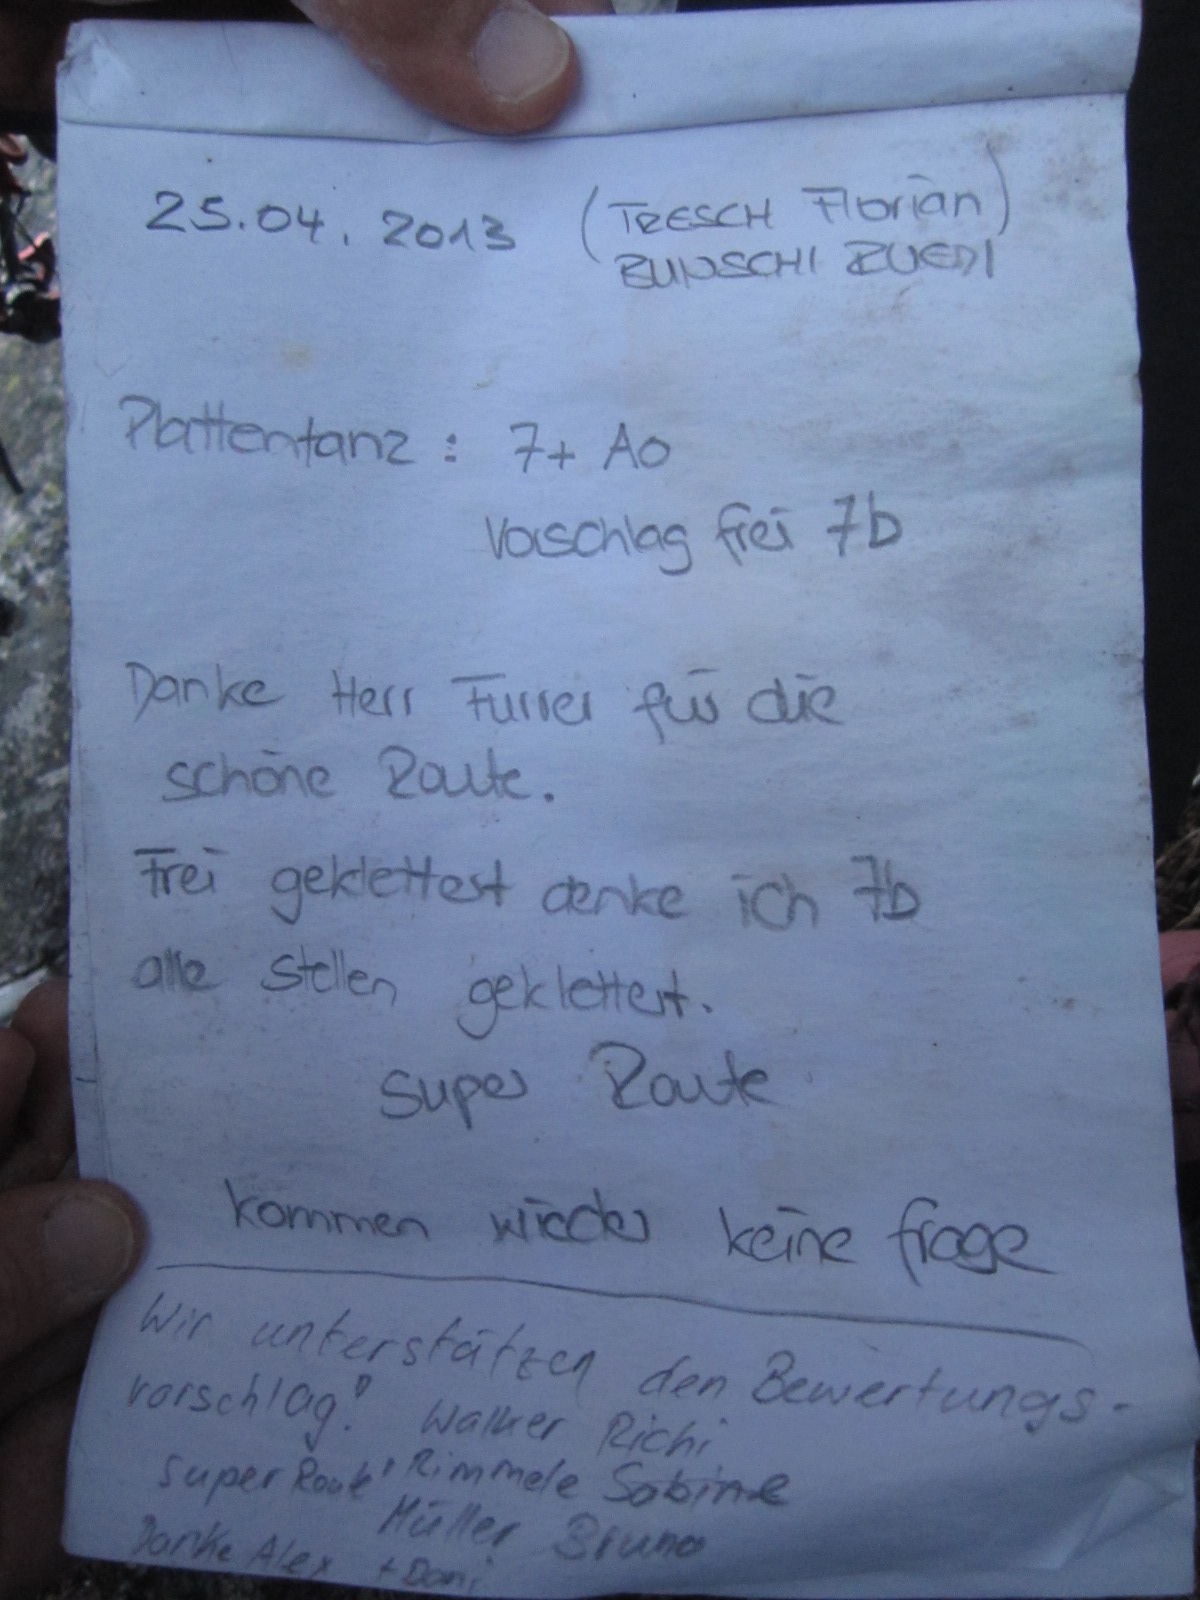 25.04.2013 (TRESCH Florian)
BUNSCHI RUEDI
Plattentanz : 7+ A0
Vorschlag frei 7b
Danke Herr Furrer für die
schöne Route.
Frei geklettert denke ich 7b
alle Stellen geklettert.
Super Route
kommen wieder keine frage
Wir unterstützen den Bewertungs-
vorschlag! Walker Richi
Super Route! Rimmele Sabine
Müller Bruno
Danke Alex + Dani